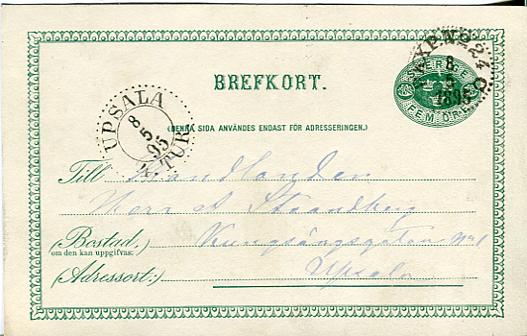 PXP. Nº 24 C
8
5
1895
SVERIGE
FEM ÖRE
BREFKORT.
UPSALA
8
5
95
4. TUR
(DENNA SIDA ANVÄNDES ENDAST FÖR ADRESSERINGEN.)
Till Handlanden
Herr A Strandberg
(Bostad,) Kungsängsgatan No 1
om den kan uppgifvas:
(Adressort:) Upsala